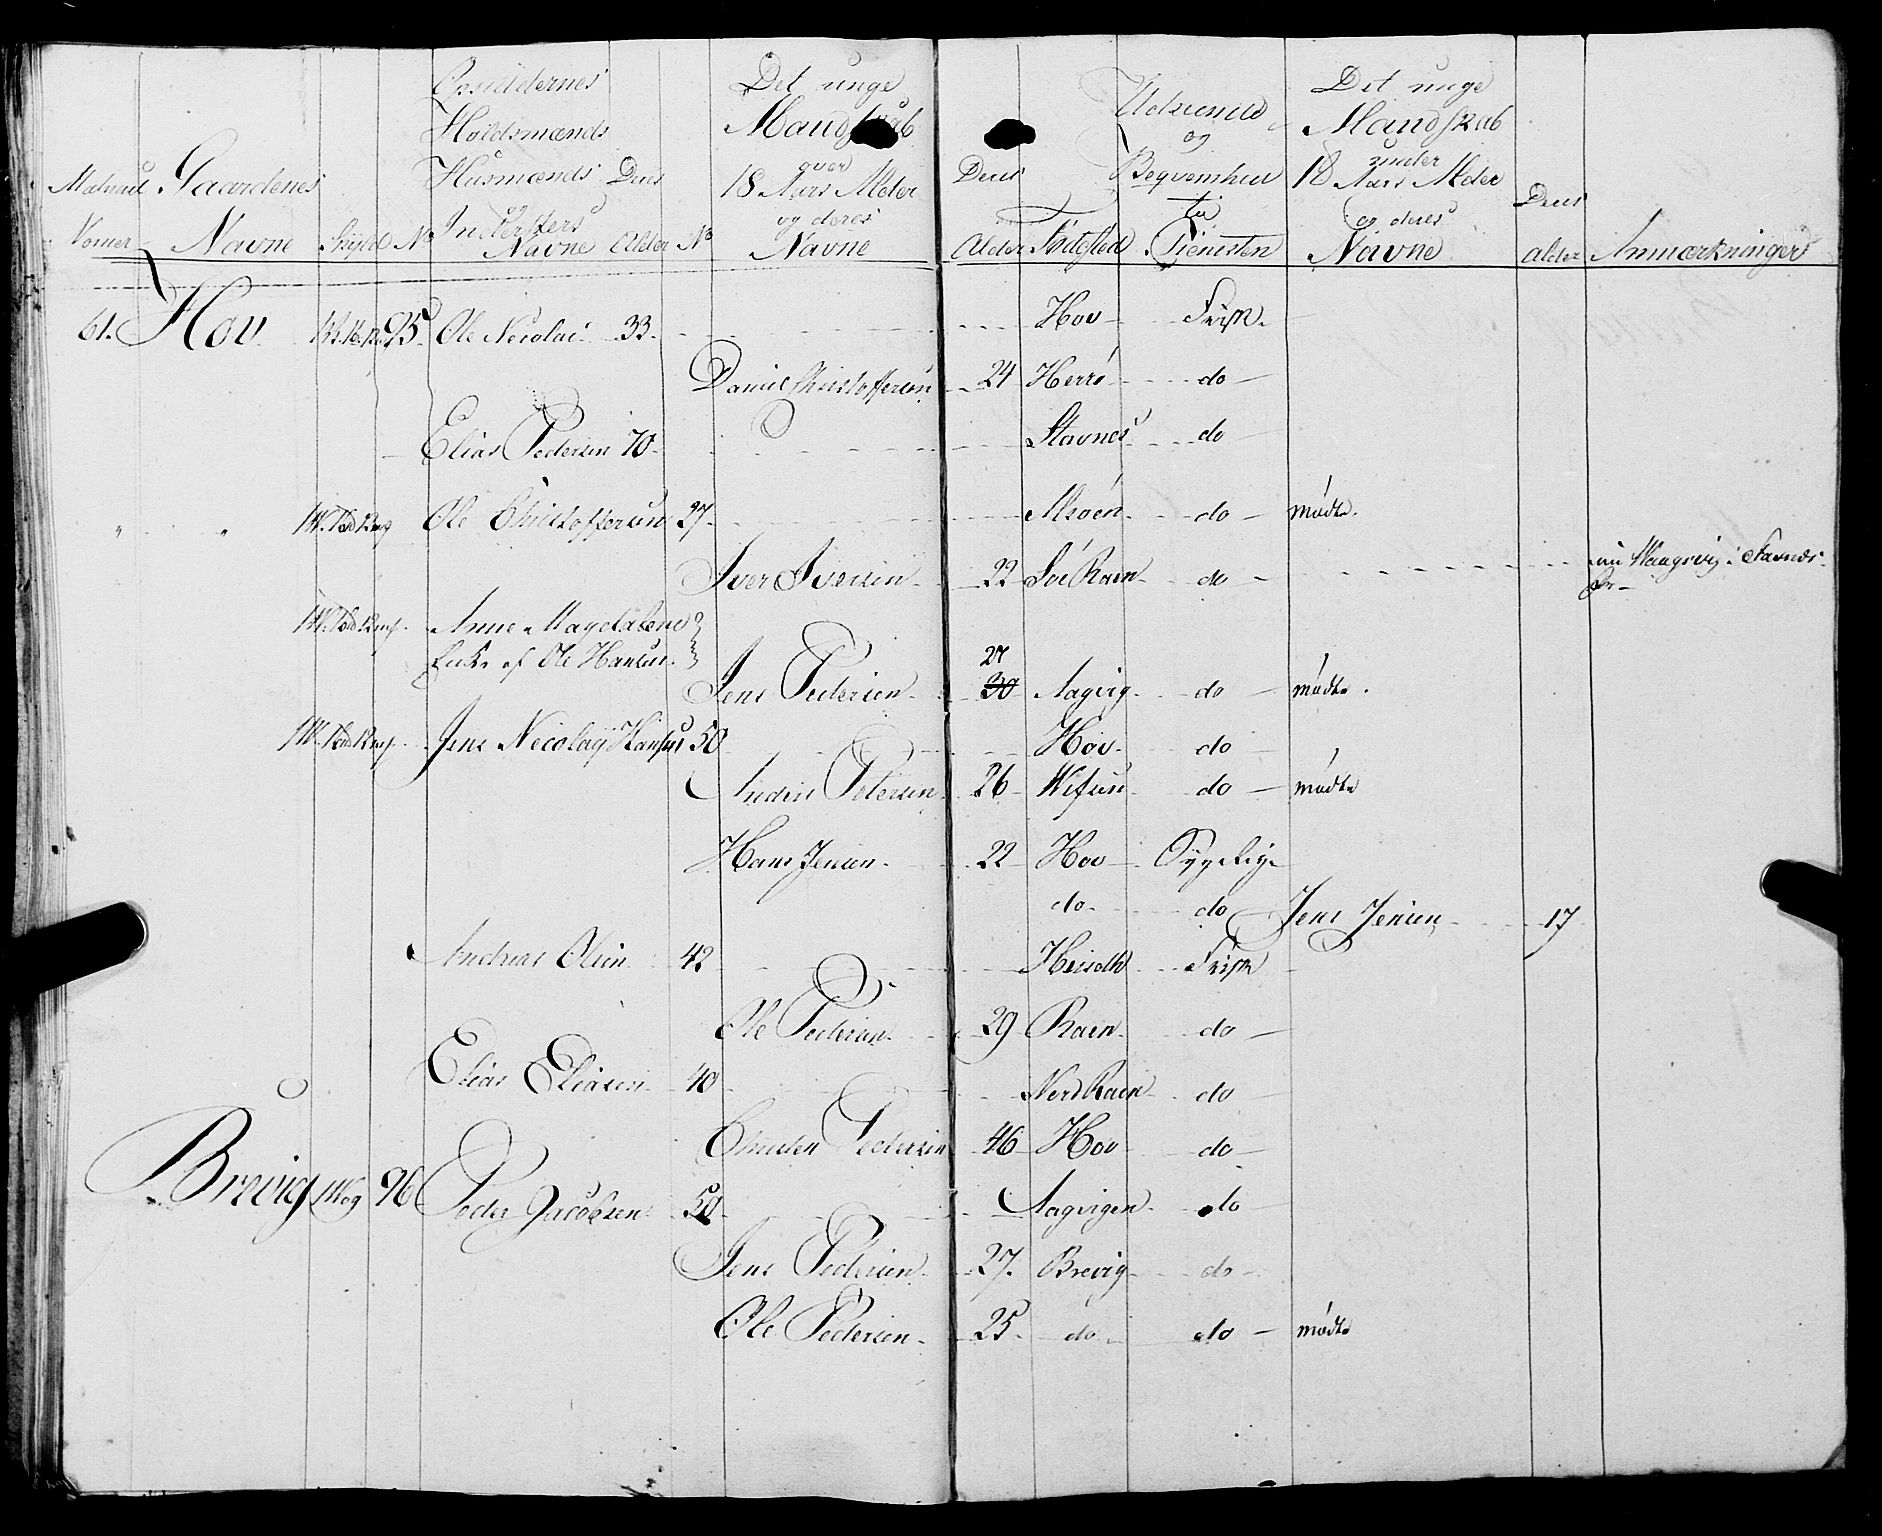 Matricul Nomer
Gaardenes Navne
Skyld
No
Opsiddernes Holdsmænds Husmænds og Indersters Navne
Deres Alder
No
Det unge Mandskab over 18 Aars Alder og deres Navne
Deres Alder
Fødested
Udseende og Beqvemhed til Tienesten
Det unge Mandskab under 18 Aars Alder og deres Navne
Deres alder
Anmærkninger
61. Hov 95 Ole Nicolai 33. Hov Frisk.
Daniel Christoffersen 24 Herrö do
Elias Pedersen 70 Stavnes do
" " Ole Christoffersen 27 do mödte.
Iver Iversen 22 do
Anne Magdalene
Enke af Ole Hansen
Jens Pedersen 27 30 Aagvig do mödte.
Jens Nicolaÿ Hansen 50 Hov do
Anders Petersen 26 do mödte
Hans Jensen 22 Hov Sygelig
do do Jens Jensen 17
Andreas Olsen 42 Frisk
Ole Pedersen 29 Raen do
Elias Eliasen 40 Nord Raen do
Christen Pedersen 46 Hov do
Brevig 96 Peder Jacobsen 50 Aagvigen do
Jens Pedersen 27. Brevig do
Ole Pedersen 25 do do mödte